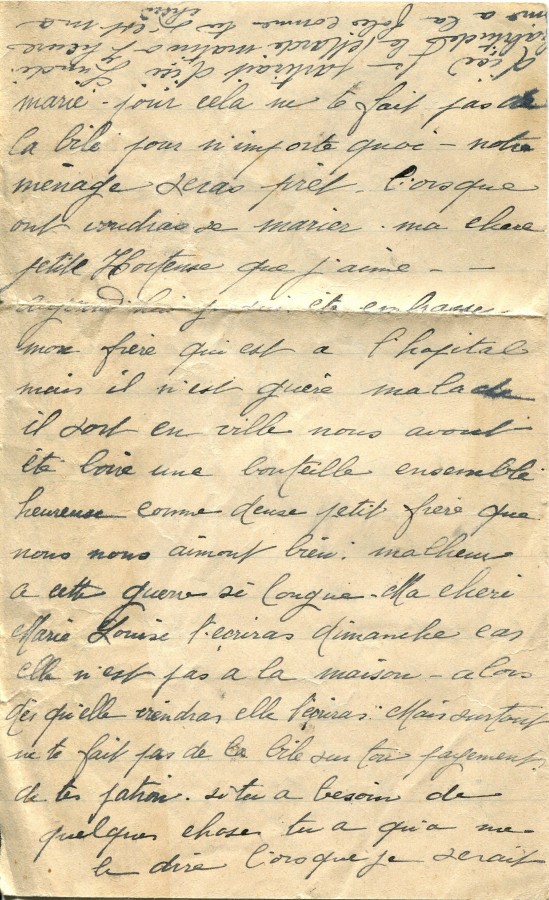 marie - jour cela ne te fait pas de
la bile pour n'importe quoi - notre
ménage seras prêt. lorsque
ont voudras se marier. ma chere
petite Hortense que j'aime - -
été embrasse
mon frère qui est a l'hopital
mais il n'est guère malade
il sort en ville nous avont
été boire une bouteille ensemble
heureuse comme deuse petit frère que
nous nous aimont bien. malheur
a cette guerre si longue - Ma cheri
Marie Louise t'écriras dimanche cas
elle n'est pas a la maison - alors
des qu'elle viendras elle t'écriras. Mais surtout
ne te fait pas de la bile sur ton payement
de tes patron. si tu a besoin de
quelques chose tu a qu'a me
le dire lorsque je serait